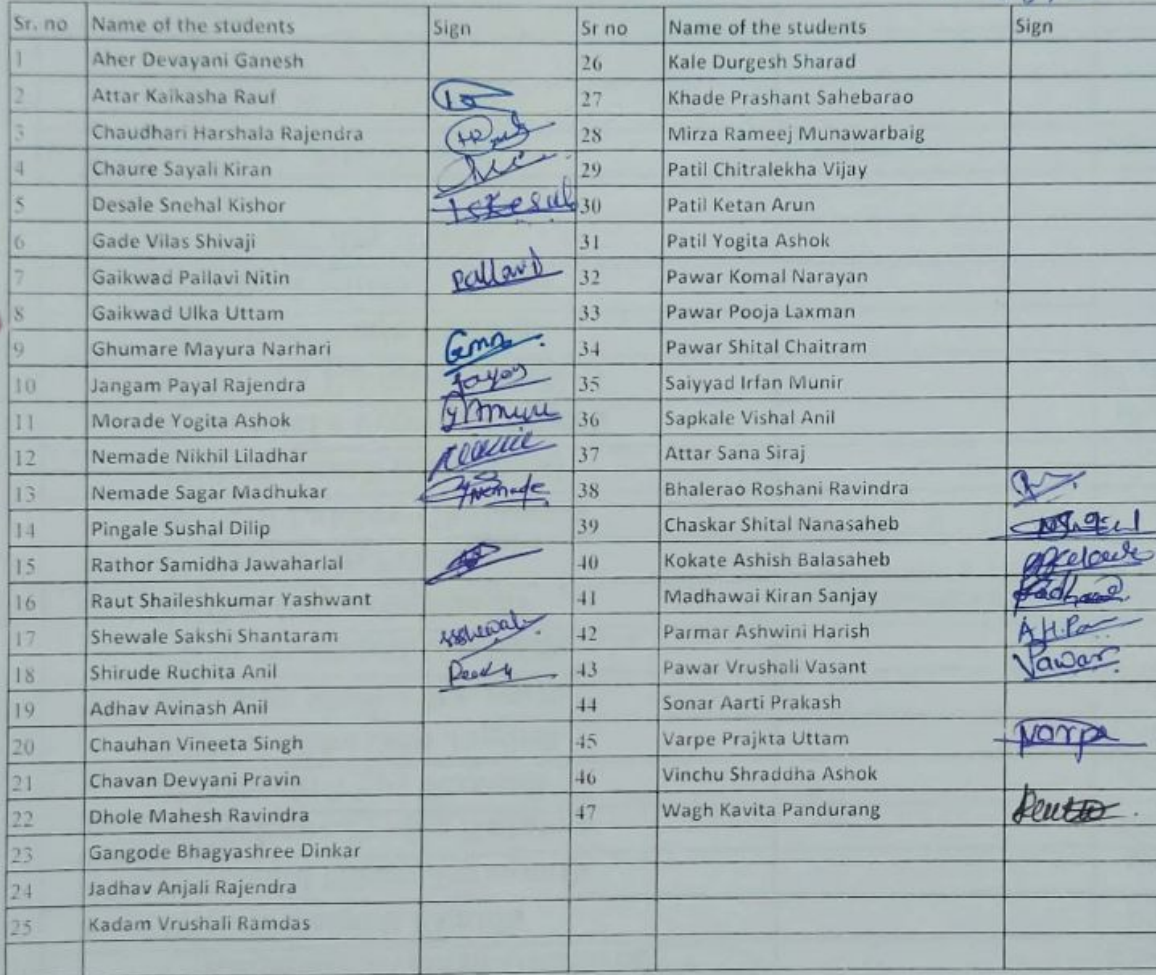 Sr. no Name of the students Sign Sr no Name of the students Sign
1 Aher Devayani Ganesh 26 Kale Durgesh Sharad
2 Attar Kaikasha Rauf 27 Khade Prashant Sahebarao
3 Chaudhari Harshala Rajendra 28 Mirza Rameej Munawarbaig
4 Chaure Sayali Kiran 29 Patil Chitralekha Vijay
5 Desale Snehal Kishor 30 Patil Ketan Arun
6 Gade Vilas Shivaji 31 Patil Yogita Ashok
7 Gaikwad Pallavi Nitin Pallavi 32 Pawar Komal Narayan
8 Gaikwad Ulka Uttam 33 Pawar Pooja Laxman
9 Ghumare Mayura Narhari 34 Pawar Shital Chaitram
10 Jangam Payal Rajendra 35 Saiyyad Irfan Munir
11 Morade Yogita Ashok 36 Sapkale Vishal Anil
12 Nemade Nikhil Liladhar 37 Attar Sana Siraj
13 Nemade Sagar Madhukar 38 Bhalerao Roshani Ravindra
14 Pingale Sushal Dilip 39 Chaskar Shital Nanasaheb
15 Rathor Samidha Jawaharlal 40 Kokate Ashish Balasaheb
16 Raut Shaileshkumar Yashwant 41 Madhawai Kiran Sanjay
17 Shewale Sakshi Shantaram 42 Parmar Ashwini Harish
18 Shirude Ruchita Anil 43 Pawar Vrushali Vasant
19 Adhav Avinash Anil 44 Sonar Aarti Prakash
20 Chauhan Vineeta Singh 45 Varpe Prajkta Uttam
21 Chavan Devyani Pravin 46 Vinchu Shraddha Ashok
22 Dhole Mahesh Ravindra 47 Wagh Kavita Pandurang
23 Gangode Bhagyashree Dinkar
24 Jadhav Anjali Rajendra
25 Kadam Vrushali Ramdas